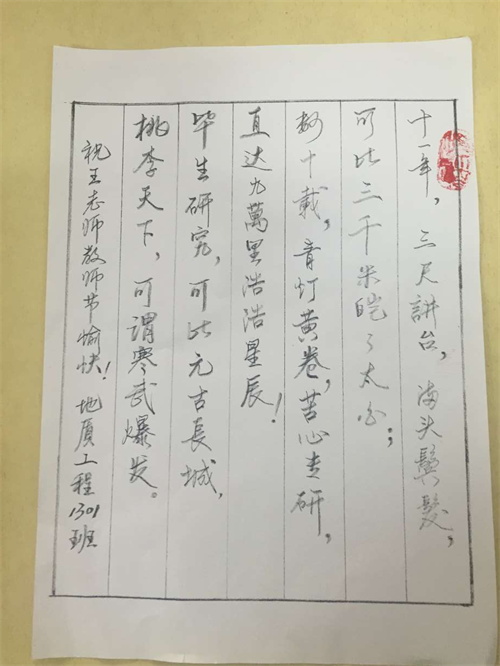 十一年，三尺讲台，满头鬓髮，
可比三千米皑々太白；
数十载，青灯黄卷，苦心玄研，
直达九萬里浩浩星辰！
毕生研究，可比元古長城，
桃李天下，可谓寒武爆发。
祝王老师教师节愉快！地质工程1301班